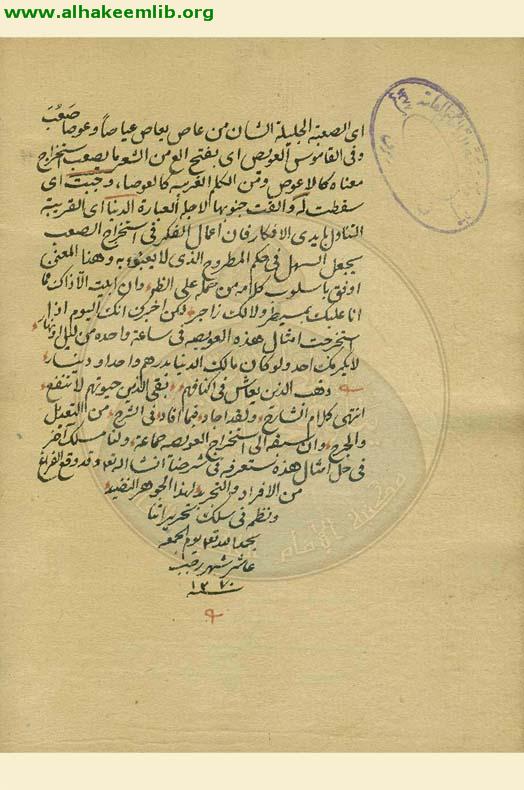 www.alhakeemlib.org
اى الصعبة الجليلة الشان من عاص يعاص عياصا وعوصا صَعُبَ
وفى القاموس العويص اى بفتح العين من الشعر ما يصعب استخراج
معناه كالاعوص ومن الكلم الغريبة كالعوصا، وجبت اى
سقطت له والقت جنوبها لاجل العبارة الدنيا اى القريبة
التناول بايدى الافكار فان اعمال الفكر فى استخراج الصعب
يجعل السهل فى حكم المطروح الذى لا يعبؤ به وهذا المعنى
اوفق باسلوب كلامه من حمله على الظم وان ابيت الا ذاك فما
انا عليك بمسيطر ولا لك زاجر لكن اخبرن انك اليوم اذا
استخرجت امثال هذه العويصه فى ساعة واحدة من ليل او نهار
لا يكرمك احد ولو كان مالك الدنيا بدرهم واحد او دينار
ذهب الذين يعاش فى اكنافهم بقى الذين حيوتهم لا تنفع
انتهى كلام الشارح ولقد اجاد فيما افاد فى الشرح من التعديل
والجرح وان سبقه الى استخراج العويصه جماعة ولنا مسلك آخر
فى حل امثال هذه ستعرفه فى شرحنا انشا الله تع وقد وقع الفراغ
من الافراد والتجريد لهذا الجوهر النضيد
ونظمه فى سلك تحريراتنا
بحمد الله تع يوم الجمعه
عاشر شهر رجب
سنه ١٢٧٠